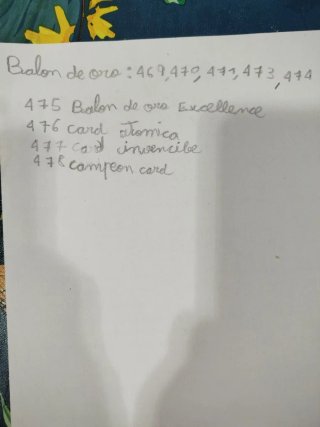 Balon de oro: 469, 470, 471, 473, 474
475 Balon de oro Excellence
476 card atomica
477 card invencibe
478 campeon card